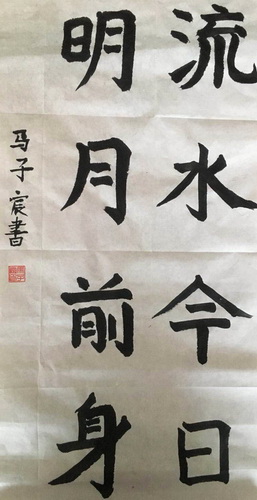 流水今日
明月前身
马子宸書